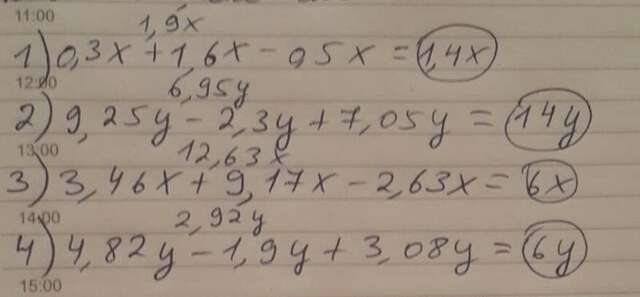 11:00
1,9x
1) 0,3x + 1,6x - 0,5x = 1,4x
12:00
6,95y
2) 9,25y - 2,3y + 7,05y = 14y
13:00
12,63x
3) 3,46x + 9,17x - 2,63x = 6x
14:00
2,92y
4) 4,82y - 1,9y + 3,08y = 6y
15:00